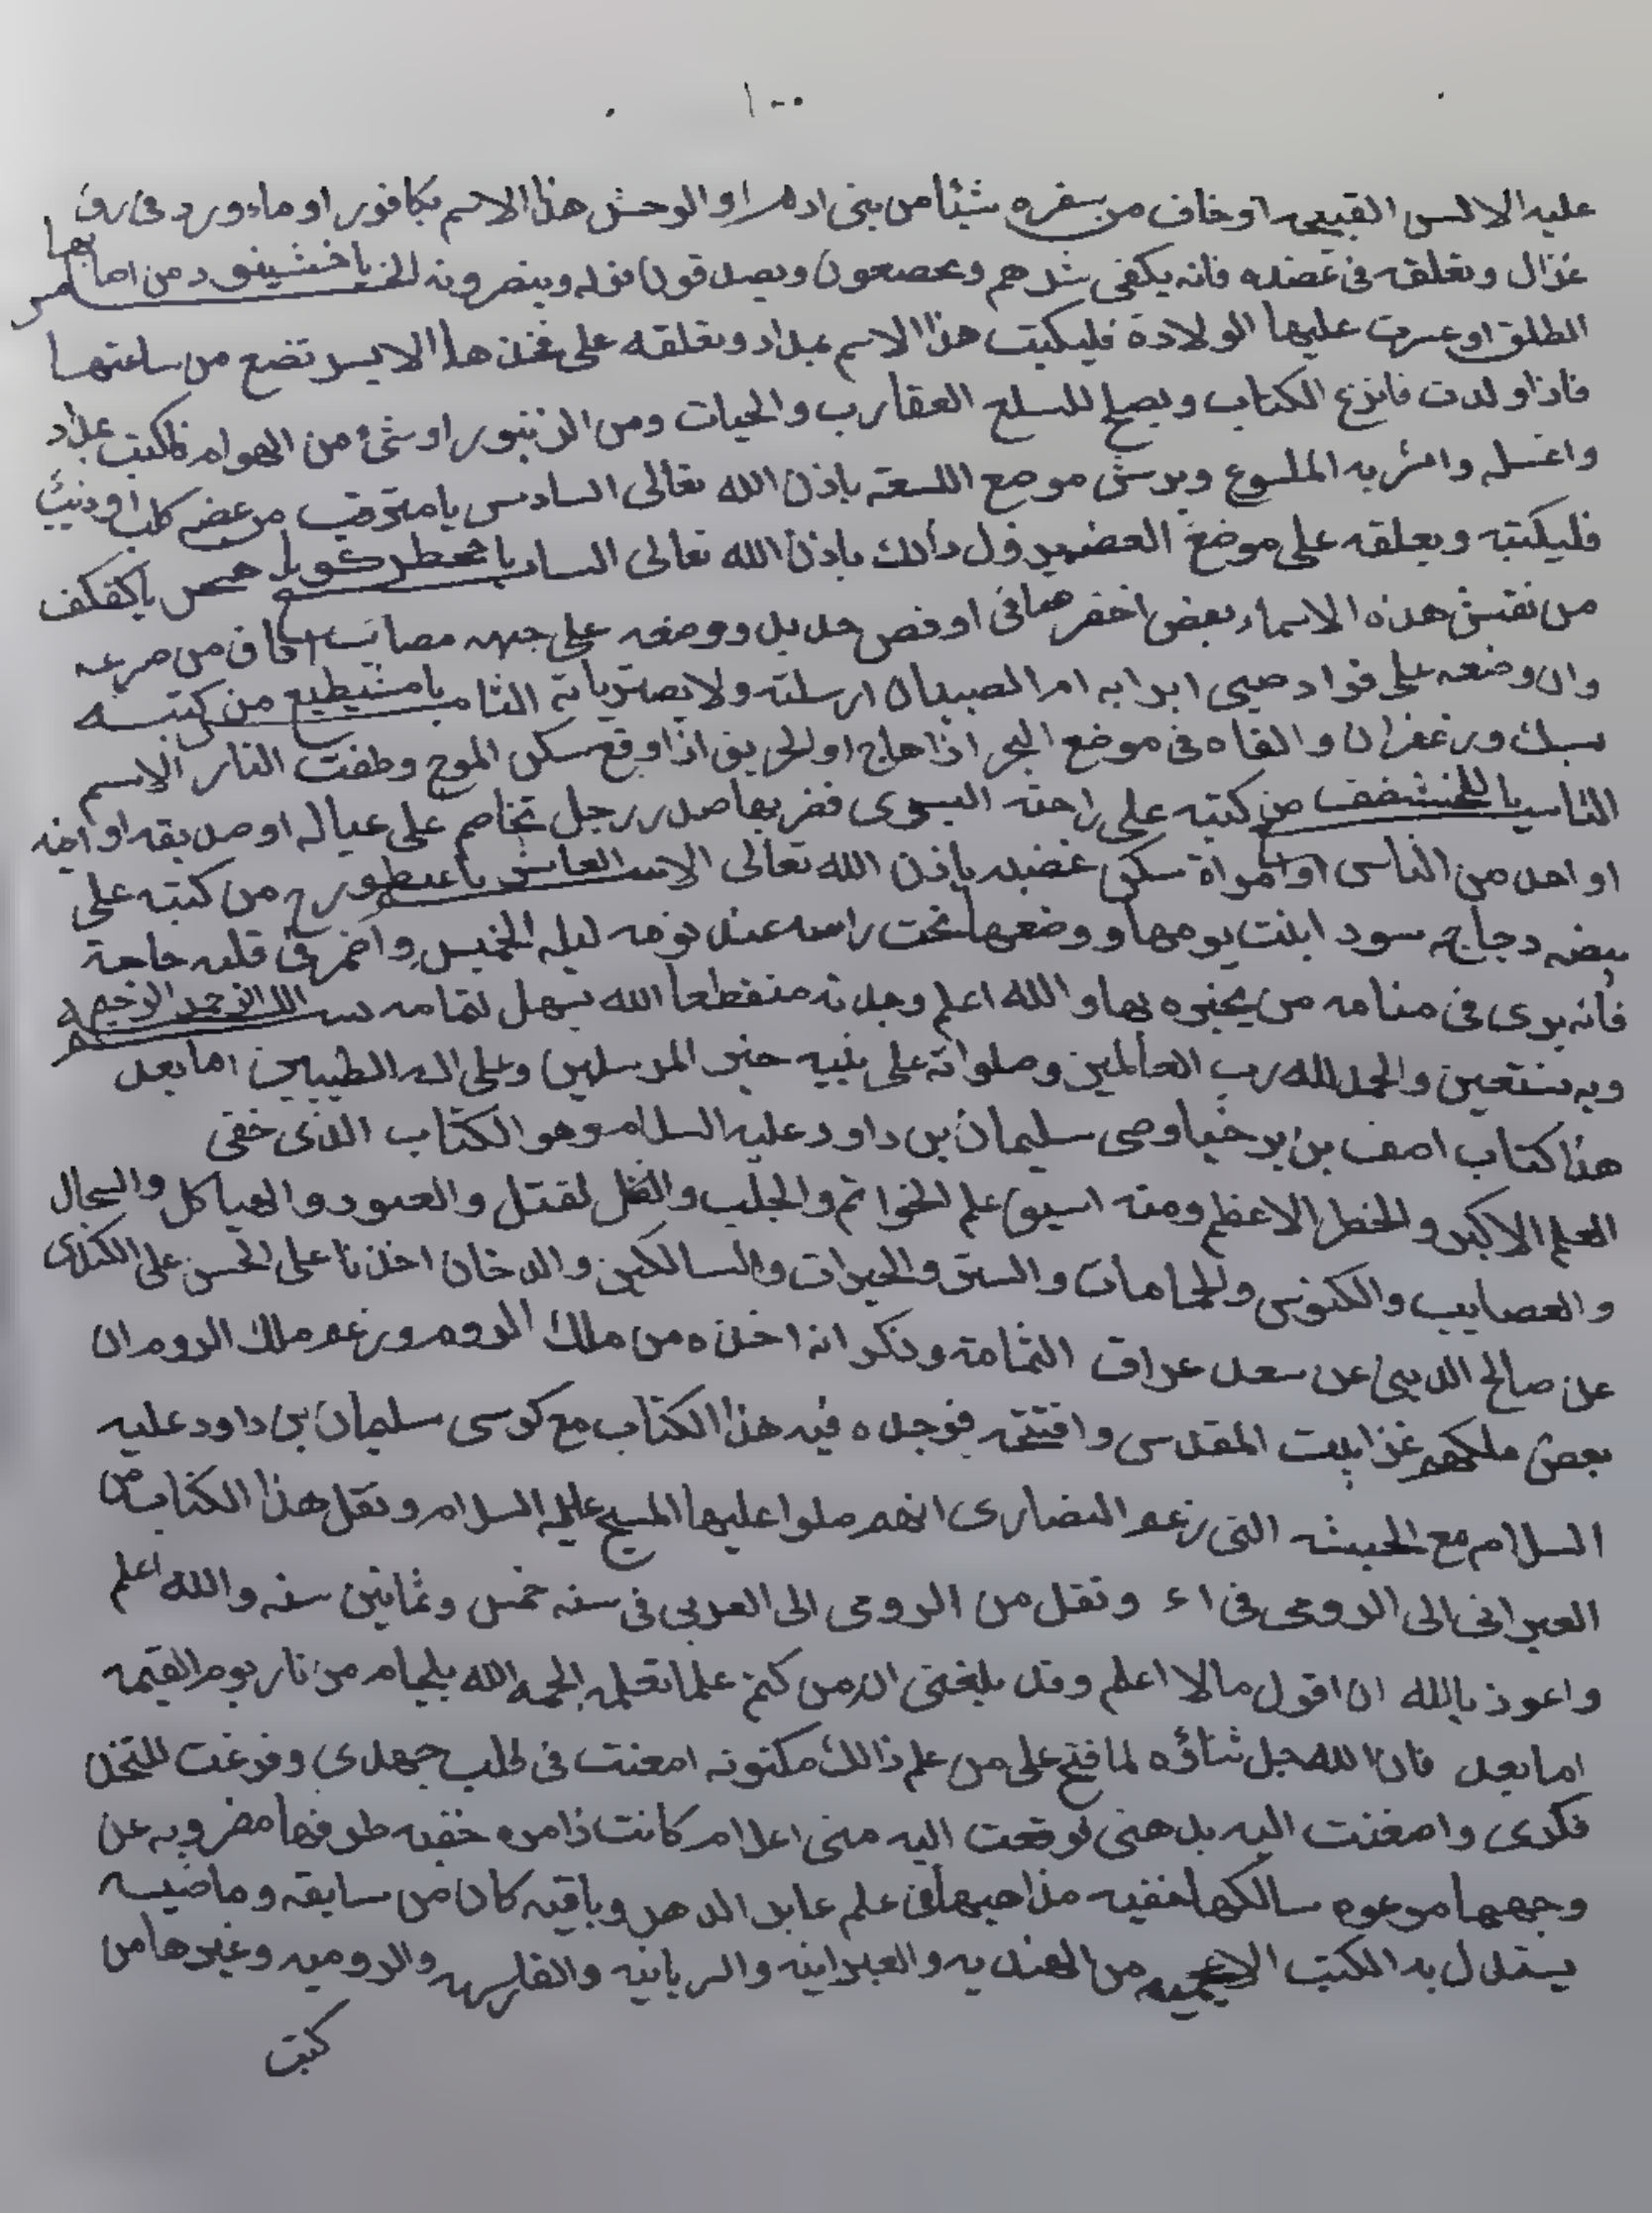 ١٠٠
عليه الالسن القبيحه او خاف من سفره شيئا من بنى ادم او الوحش هذا الاسم بكافور او ماء ورد فى رق
غزال وتعلقه فى عضده فانه يكفى شرهم ويخضعون ويصدقون قوله وينصرونه ياخشينود من اصابها
الطلق او عسرت عليها الولادة فليكتب هذا الاسم بمداد وتعلقه على فخذها الايسر تضع من ساعتها
فاذا ولدت فانزع الكتاب ويصلح للسلع العقارب والحيات ومن الزنبور او شئ من الهوام فاكتب بمداد
واغسله به الملسوع ويرش موضع اللسعة باذن الله تعالى السادس يا من عضه كلب او ذيب
فليكتبه ويعلقه على موضع العضه يزول ذالك باذن الله تعالى
من نقش هذه الاسماء بفص اخضر صافى او فص حديد ووضعه على جبهه مصاب افاق من صرعه
وان وضعه على فواد صبى ابرا به ام الصبيان ولا الثامن يامشيطيع من كتبه
بمسك وزعفران والقاه فى موضع البحر اذا هاج او الحريق اذا وقع سكن الموج وطفت النار الاسم
التاسع من كتبه على راحته اليسرى فضر بها صدر رجل تخاصم على عياله او صديقه او اخيه
او احد من الناس او امراة سكن غضبه باذن الله تعالى الاسم العاشر من كتبه على
بيضه دجاجه سود ابنت يومها ووضعها تحت راسه عند نومه ليله الخميس واضمر فى قلبه حاجة
فانه يرى فى منامه من يخبره بها والله اعلم وجدته منقطعا الله يسهل تمامه بسم الله الرحمن الرحيم
وبه نستعين والحمد لله رب العالمين وصلواته على نبيه خير المرسلين وعلى اله الطيبين اما بعد
هذا كتاب اصف بن برخيا وصى سليمان بن داود عليه السلام وهو الكتاب الذى خفى
العلم الاكبر والخطر الاعظم ومنه علم الخواتم والجلب والقتل والهياكل
والعصايب والكنوس والجامات والدخان اخذنا على الحسن على الكندى
عن صالح عن سعد عراق الثمامة وذكر انه اخذه من ملك الروم وزعم ملك الروم ان
بعض ملكهم غزا بيت المقدس وافتتحه فوجده فيه هذا الكتاب مع كرسى سليمان بن داود عليه
السلام مع الخبشه التى زعم النصارى انهم صلوا عليها المسيح عليه السلام ونقل هذا الكتاب من
العبرانى الى الرومى فى ٤١ ونقل من الرومى الى العربى فى سنه خمس وثمانين سنه والله اعلم
واعوذ بالله ان اقول مالا اعلم وقد بلغنى انه من كتم علما تعلمه الجمه الله بلجام من نار يوم القيمه
اما بعد فان الله جل ثناؤه لما فتح على من علم ذالك مكنونه امعنت فى طلب جهدى وفرغت
فكرى واصغنت اليه بذهنى فوقعت اليه منى اعلام كانت خفيه طرفها مضروبه عن
وجهها سالكها خفيه مذاهبها فى علم عابر الدهر وباقيه كان من سابقه وماضيه
يستدل به الكتب الاعجميه من الهنديه والعبرانيه والسريانيه والفارسيه والروميه وغيرها من
كتب